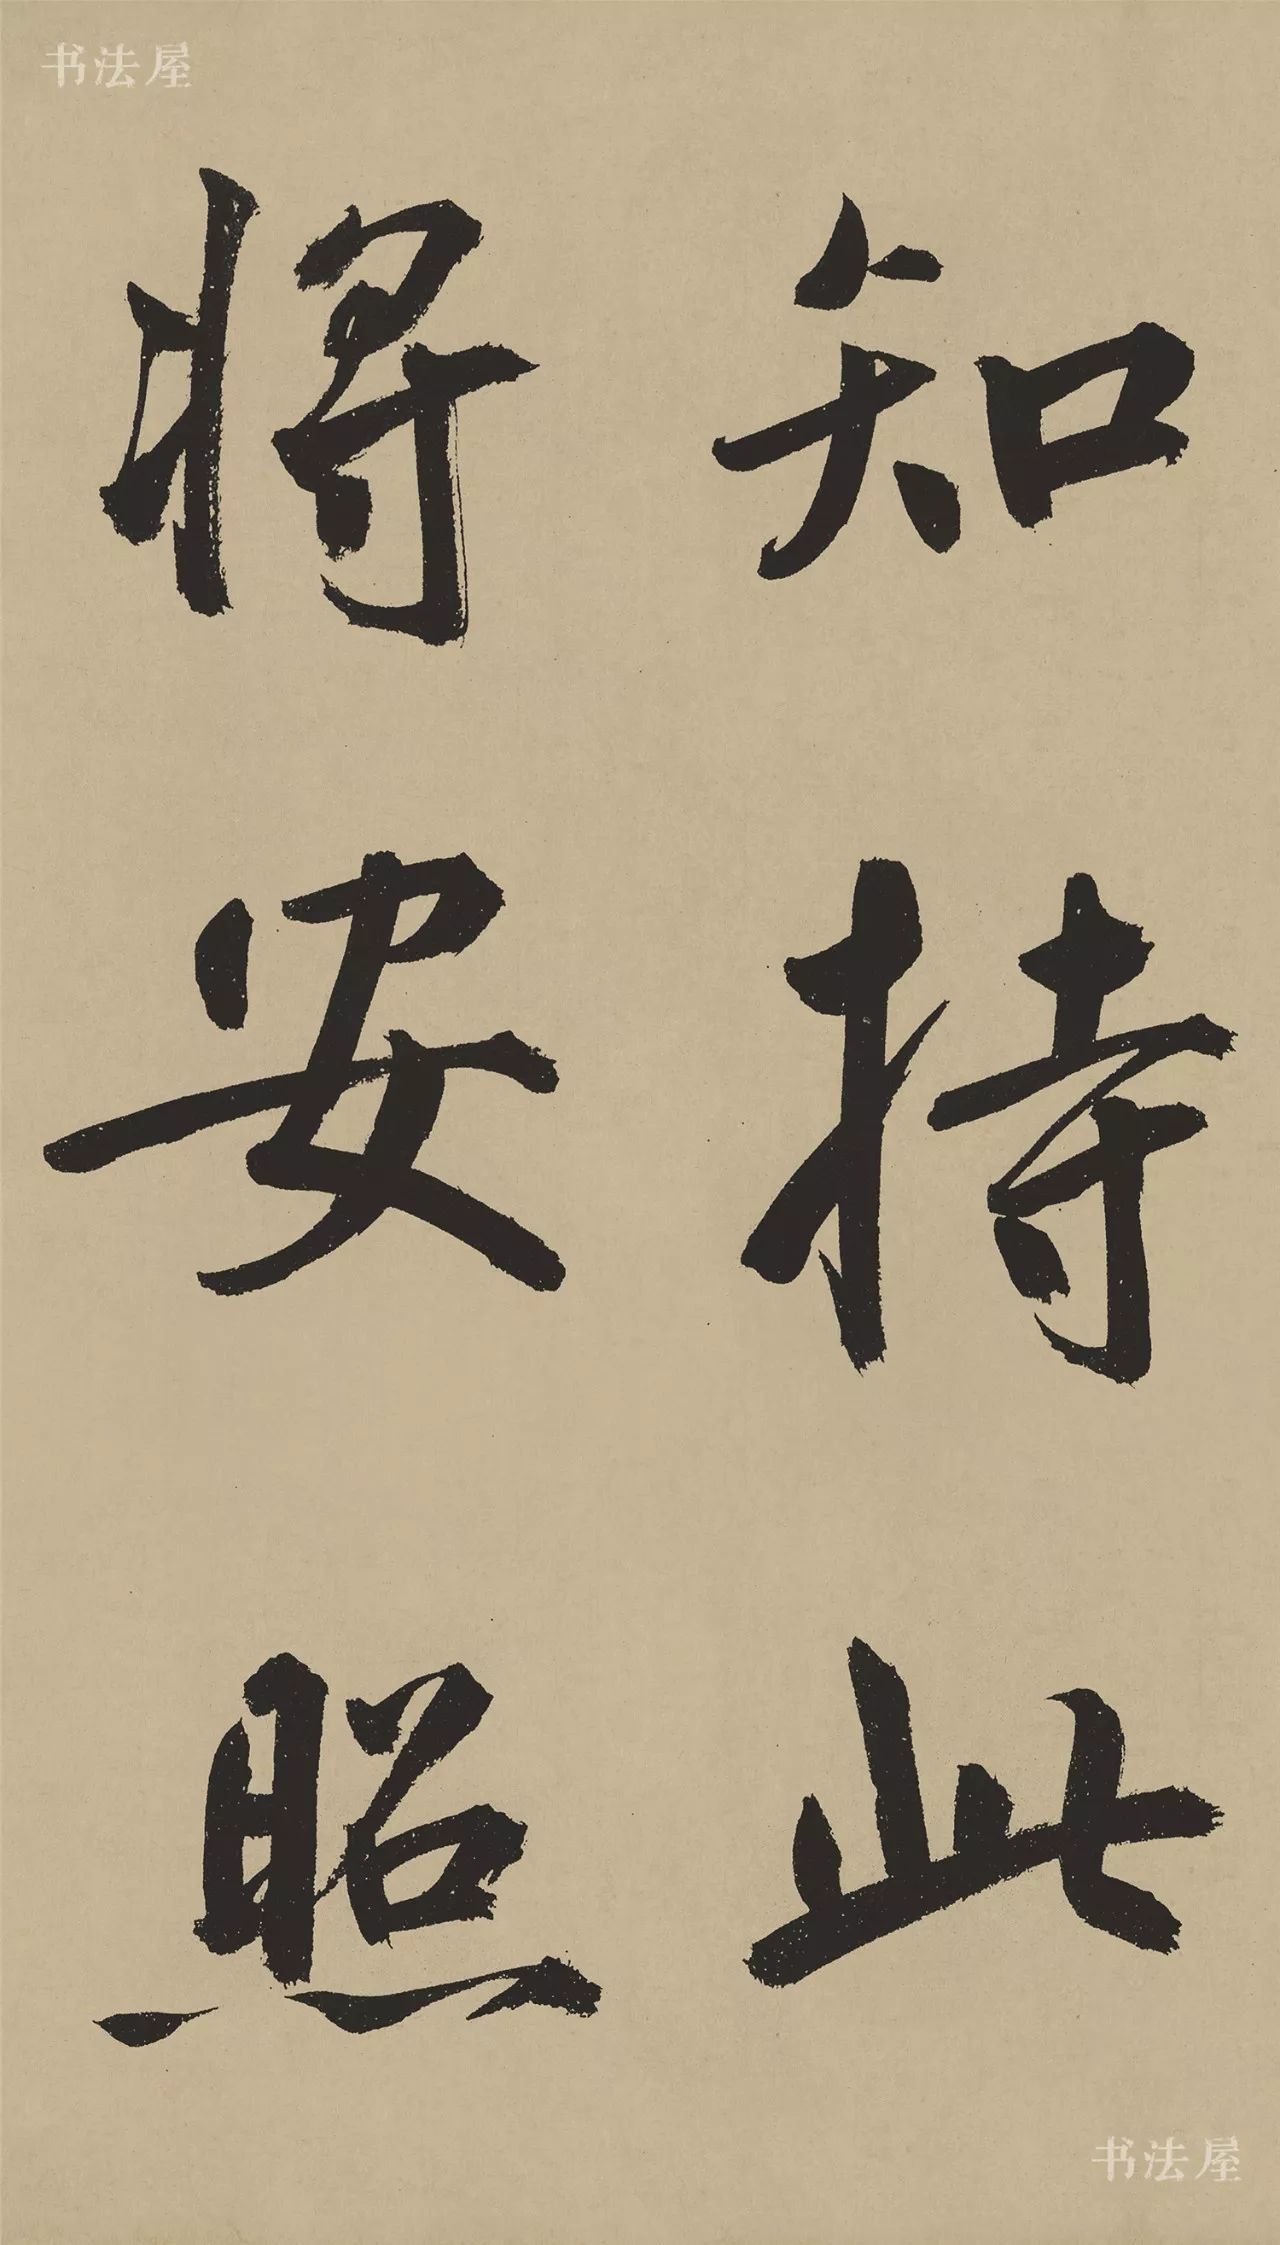 书法屋
知持此
将安照
书法屋